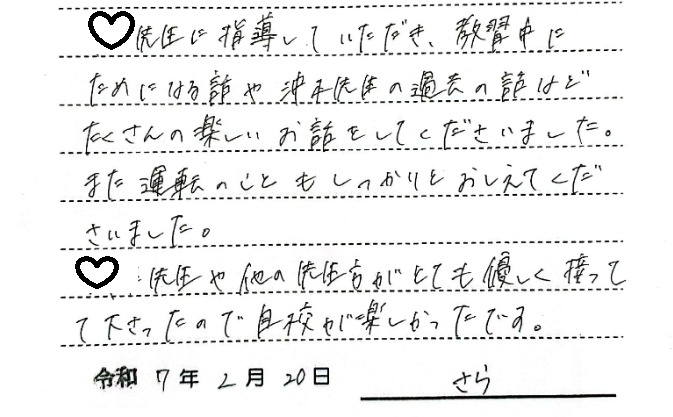 ♡先生に指導していただき、教習中に
ためになる話や沖本先生の過去の話など
たくさんの楽しいお話をしてくださいました。
また運転のこともしっかりとおしえてくだ
さいました。
♡先生や他の先生方がとても優しく接って
て下さったので自校が楽しかったです。
令和 7年 2月 20日 さら